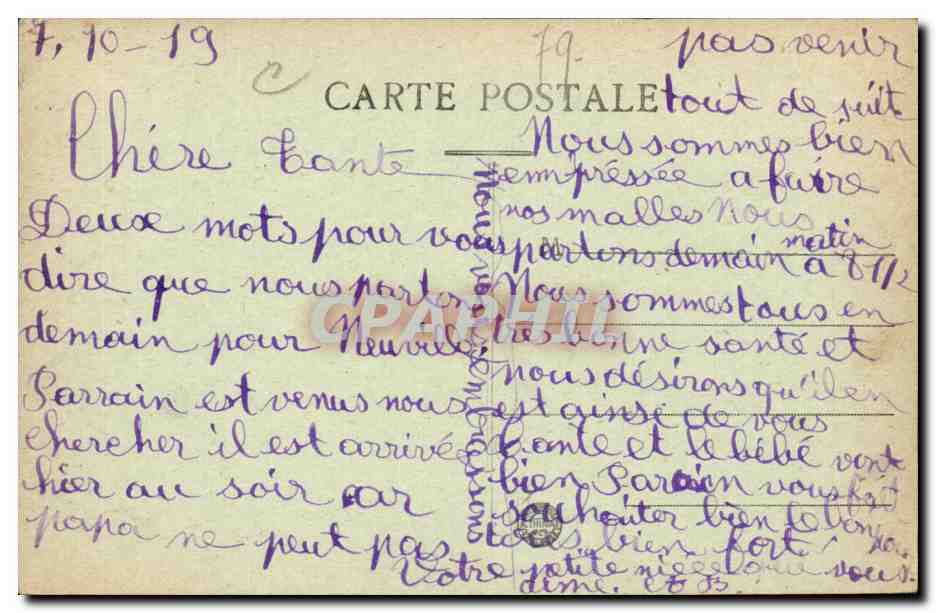 7, 10 - 19
79.
CARTE POSTALE
Chère Tante
Deux mots pour vous
dire que nous partons
demain pour Neuville.
Parrain est venus nous
chercher il est arrivé
hier au soir car
papa ne peut pas
pas venir
tout de suit
Nous sommes bien
empréssée a faire
nos malles Nous
partons demain matin à 8 1/2
Nous sommes tous en
très bonne santé et
nous désirons qu'il en
est ainsi de vous
tante et le bébé vont
bien Parain vous fait
souhaiter bien le bonjour
Nous vous embrassons
tous bien fort.
Votre petite niece qui vous
aime. et B.
CPAPHIL